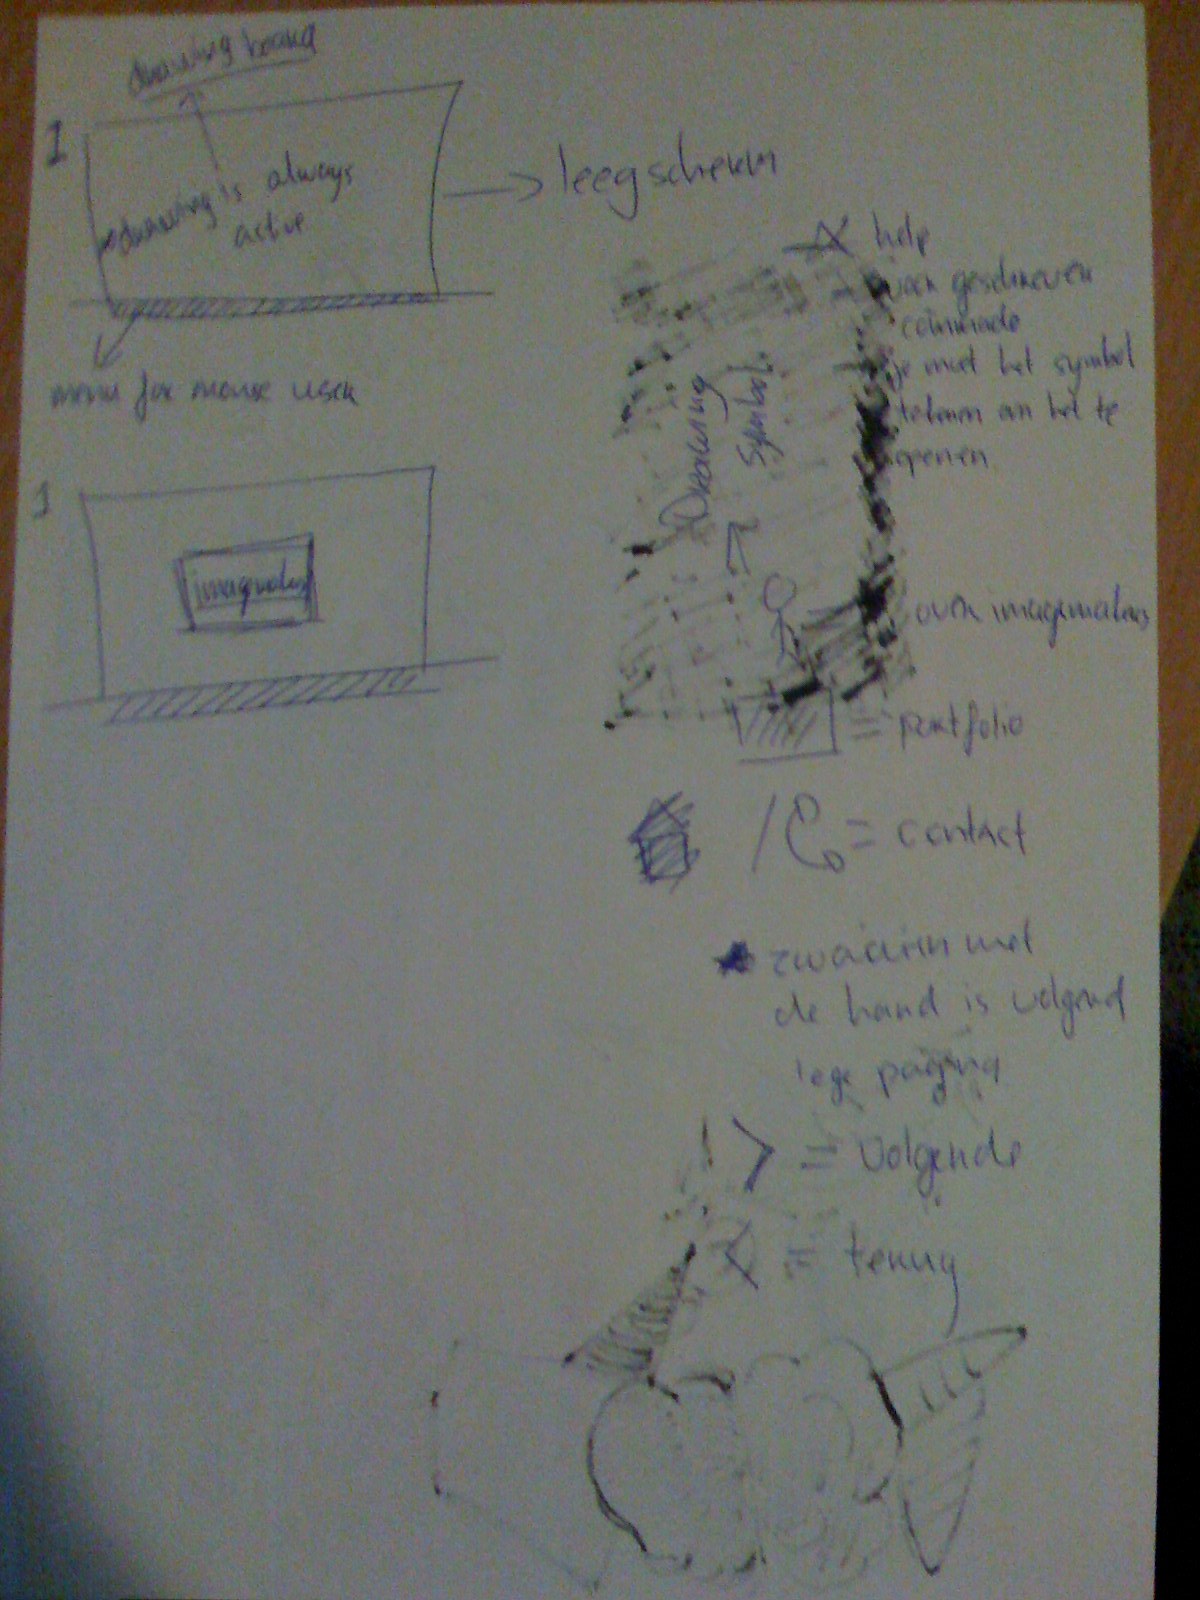 drawing board
1
drawing is always
active
leegscherm
menu for mouse user
help
voor geschreven
commado
je moet het symbol
tekenen om het te
openen
Drawing
Symbol
1
over imagemakers
= portfolio
/ = contact
zwaaien met
de hand is volgend
lege pagina
> = volgende
< = terug